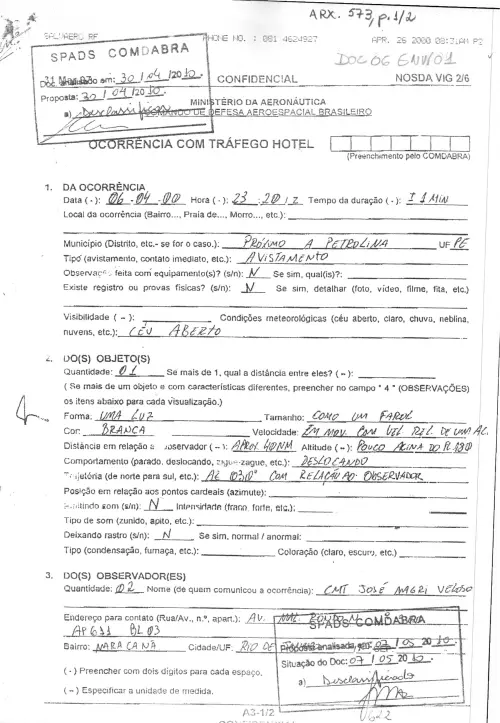 ARX. 573, p. 1/2
PHONE NO. : 081 4624927 APR. 26 2000
DOC 06 ENV01
SPADS COMDABRA
Doc analisado em: 30 / 04 /2010.
Proposta: 30 / 04 /2010.
a) Desclassificado
CONFIDENCIAL NOSDA VIG 2/6
MINISTÉRIO DA AERONÁUTICA
COMANDO DE DEFESA AEROESPACIAL BRASILEIRO
OCORRÊNCIA COM TRÁFEGO HOTEL
(Preenchimento pelo COMDABRA)
1. DA OCORRÊNCIA
Data ( - ): 06 - 04 - 00 Hora ( - ): 23 : 20 / Z Tempo da duração ( - ): ± 1 MIN
Local da ocorrência (Bairro..., Praia de..., Morro..., etc.):
Município (Distrito, etc.- se for o caso.): PRÓXIMO A PETROLINA UF PE
Tipo (avistamento, contato imediato, etc.): AVISTAMENTO
Observação feita com equipamento(s)? (s/n): N Se sim, qual(is)?:
Existe registro ou provas físicas? (s/n): N Se sim, detalhar (foto, vídeo, filme, fita, etc.)
Visibilidade ( ~ ): Condições meteorológicas (céu aberto, claro, chuva, neblina,
nuvens, etc.): CÉU ABERTO
2. DO(S) OBJETO(S)
Quantidade: 01 Se mais de 1, qual a distância entre eles? ( ~ ):
( Se mais de um objeto e com características diferentes, preencher no campo " 4 " (OBSERVAÇÕES)
os itens abaixo para cada visualização.)
Forma: UMA LUZ Tamanho: COMO UM FAROL
Cor: BRANCA Velocidade: EM MOV. COM VEL REL DE UM AC.
Distância em relação a observador ( ~ ): APROX 40NM Altitude ( ~ ): POUCO ACIMA DO
Comportamento (parado, deslocando, zigue-zague, etc.): DESLOCANDO
Trajetória (de norte para sul, etc.): 030° COM RELAÇÃO AO OBSERVADOR
Posição em relação aos pontos cardeais (azimute):
Emitindo som (s/n): N Intensidade (fraco, forte, etc.):
Tipo de som (zunido, apito, etc.):
Deixando rastro (s/n): N Se sim, normal / anormal:
Tipo (condensação, fumaça, etc.): Coloração (claro, escuro, etc.)
3. DO(S) OBSERVADOR(ES)
Quantidade: 02 Nome (de quem comunicou a ocorrência): CMT JOSÉ MAGRI VELOSO
Endereço para contato (Rua/Av., n.º, apart.): AV. MAL RONDON
AP 611 BL 03
Bairro: MARACANÃ Cidade/UF: RIO DE
SPADS COMDABRA
Proposta analisada em: 07 / 05 20 10.
Situação do Doc: 07 / 05 20 10.
a) Desclassificado
( - ) Preencher com dois dígitos para cada espaço,
( ~ ) Especificar a unidade de medida.
A3-1/2